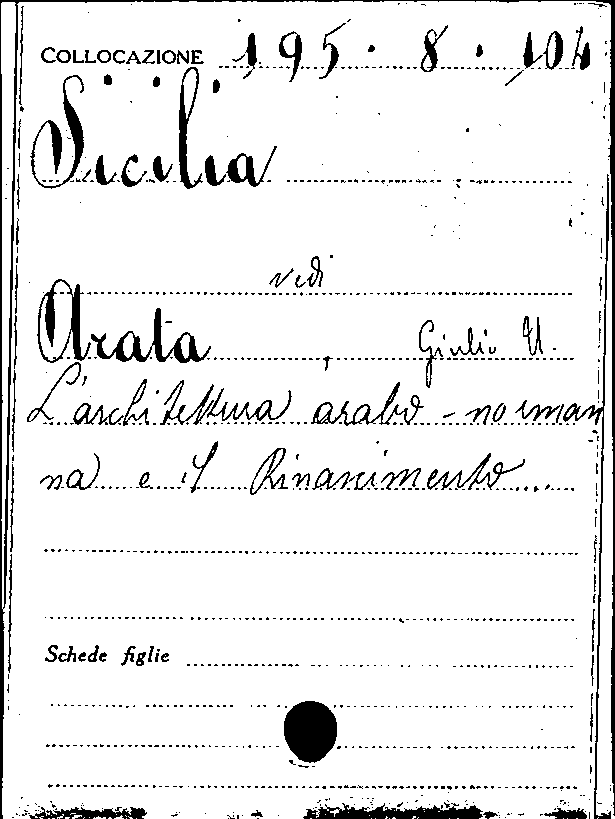 COLLOCAZIONE 195. 8. 104
Sicilia
vedi
Arata, Giulio U.
L'architettura arabo-norman
na e il Rinascimento...
Schede figlie